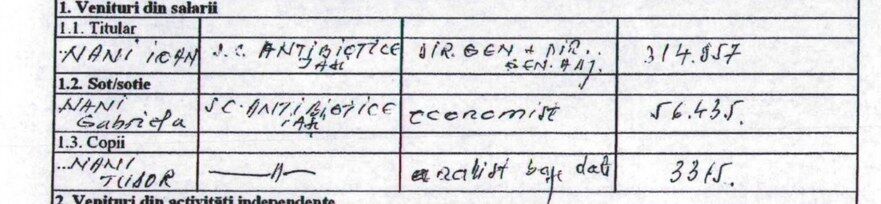 1. Venituri din salarii
1.1. Titular
NANI IOAN S.C. ANTIBIOTICE IASI DIR. GEN + DIR.. GEN. ADJ. 314.857
1.2. Sot/sotie
NANI Gabriela SC. ANTIBIOTICE IASI economist 56.435.
1.3. Copii
...NANI TUDOR —"— analist baze dati 3315.
2. Venituri din activităţi independente